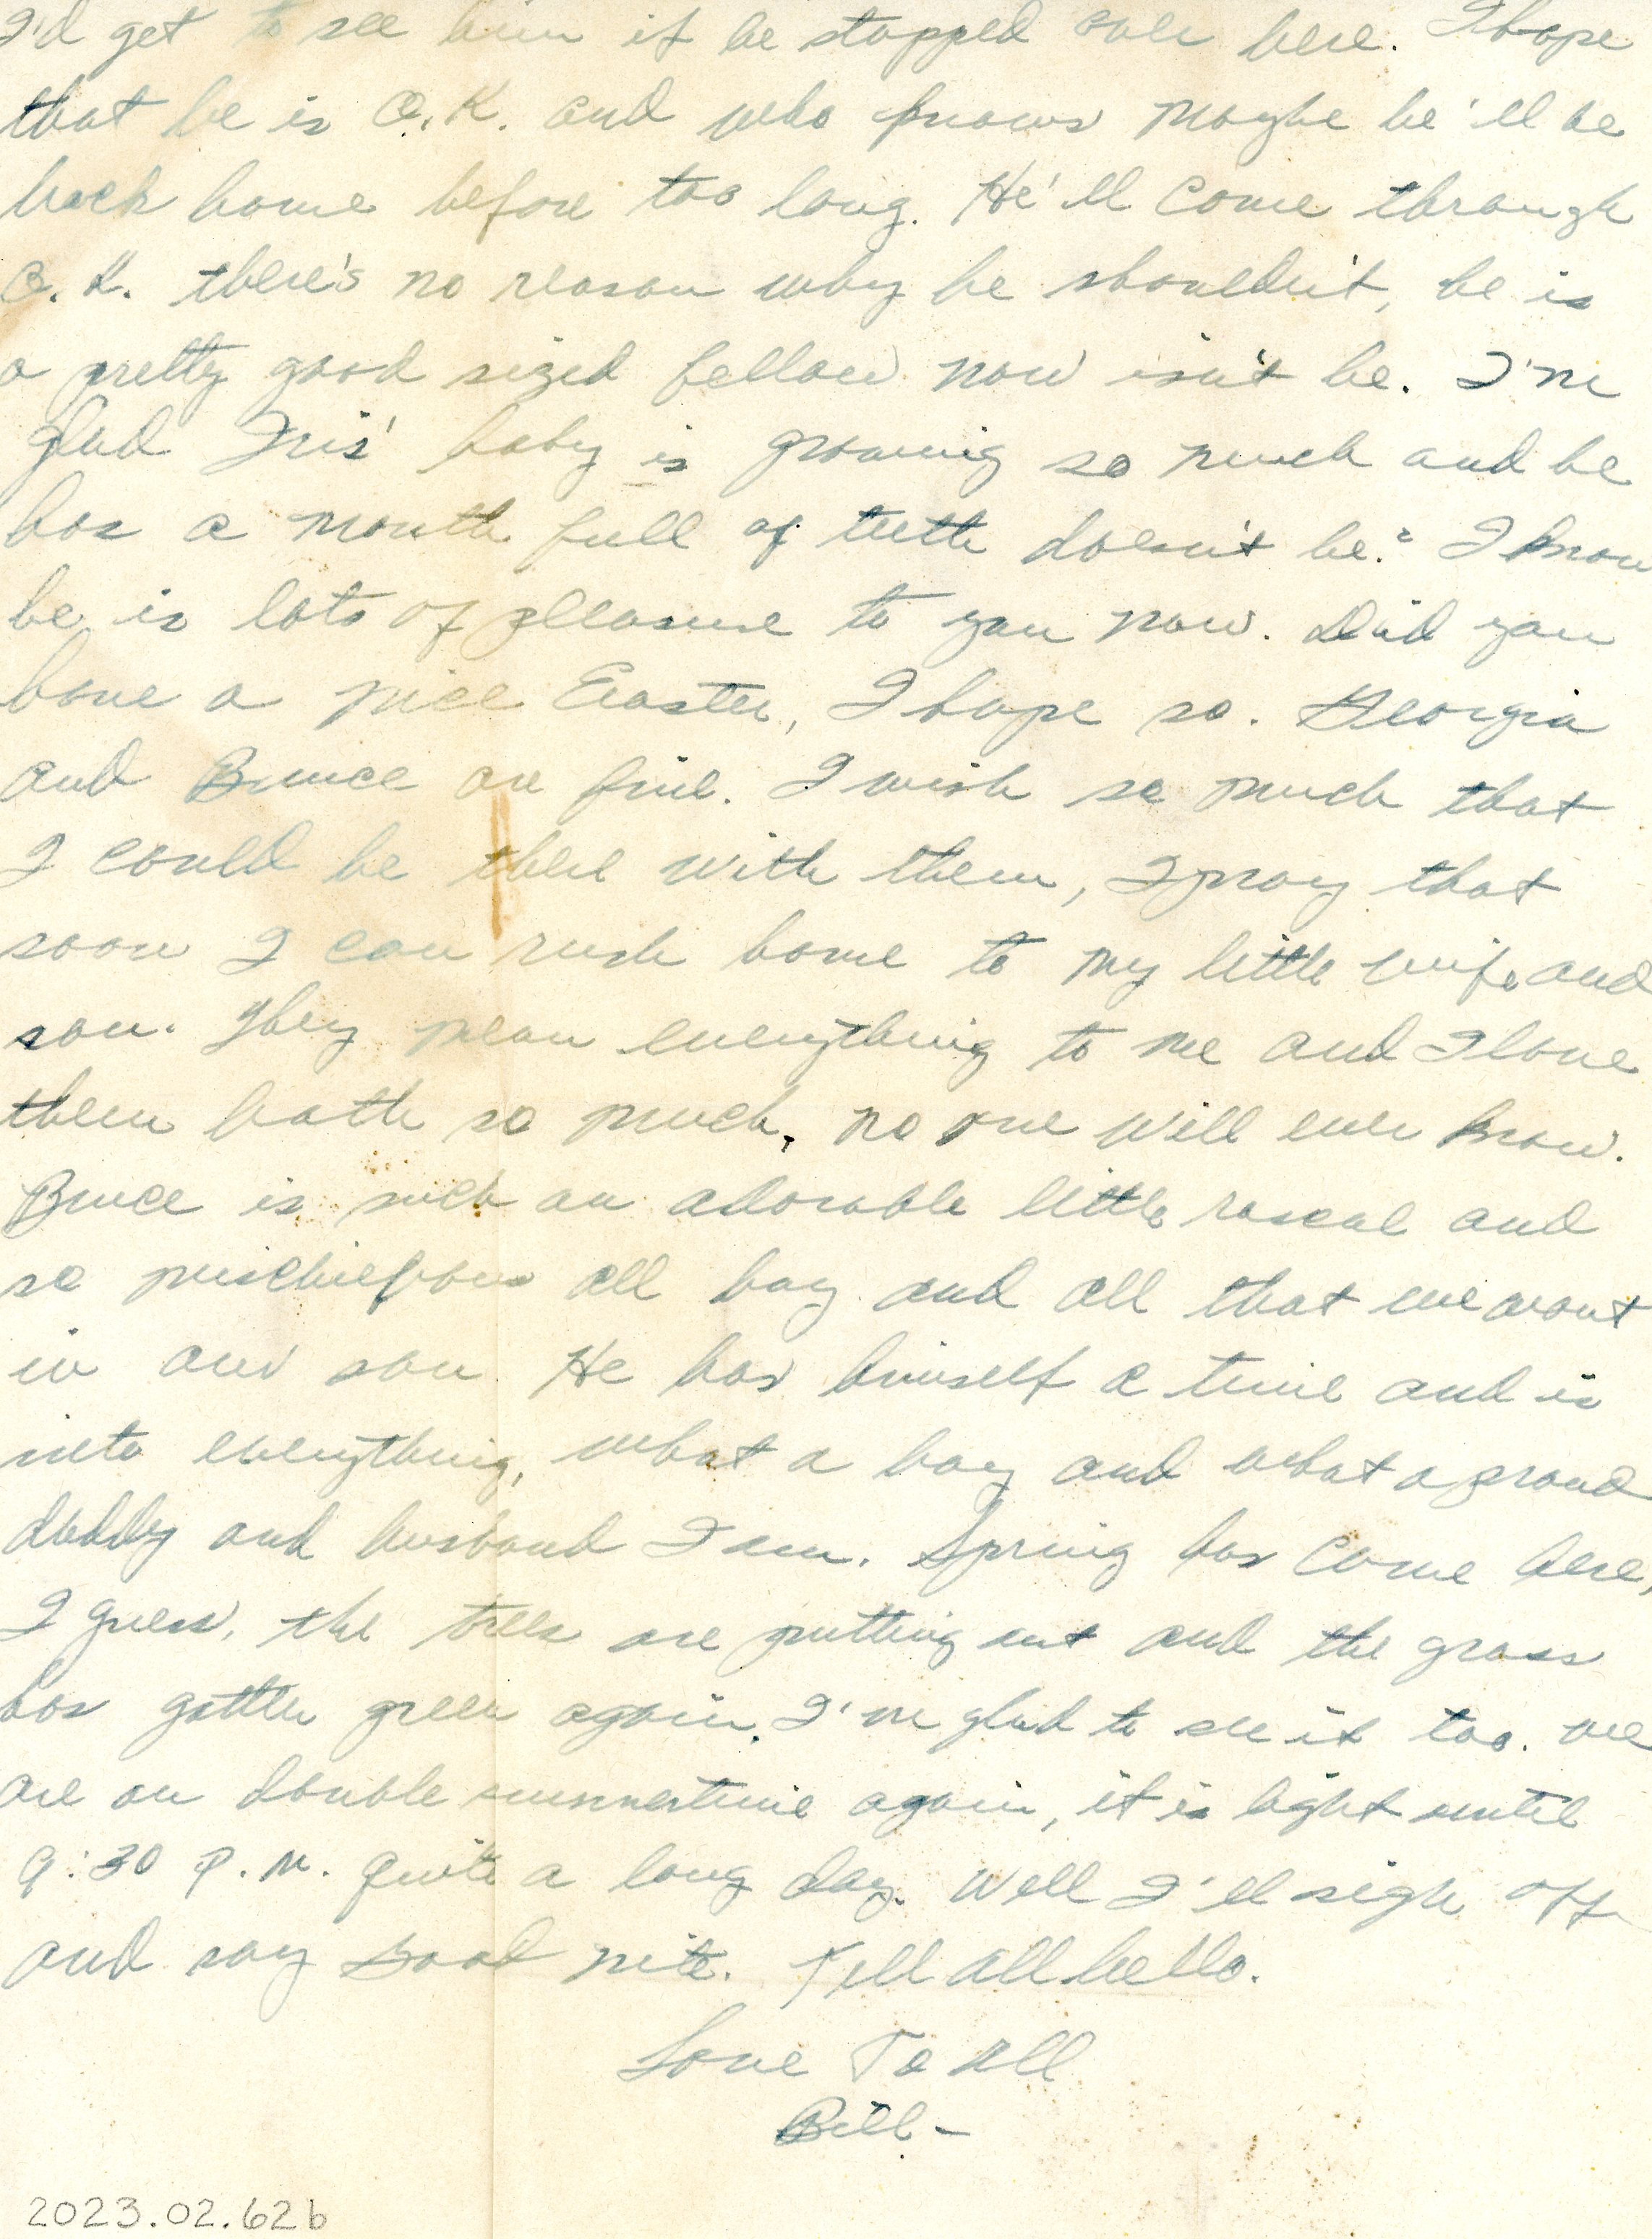 I'd get to see him if he stopped over here. I hope
that he is O.K. and who knows maybe he'll be
back home before too long. He'll come through
O.K. there's no reason why he shouldn't, he is
a pretty good sized fellow now isn't he. I'm
glad Iris' baby is growing so much and he
has a mouth full of teeth doesn't he? I know
he is lots of pleasure to you now. Did you
have a nice Easter, I hope so. Georgia
and Bruce are fine. I wish so much that
I could be there with them, I pray that
soon I can rush home to my little wife and
son. They mean everything to me and I love
them both so much, no one will ever know.
Bruce is such an adorable little rascal and
so mischiefous all boy and all that we want
in our son. He has himself a time and is
into everything, what a boy and what a proud
daddy and husband I am. Spring has come here,
I guess, the trees are putting out and the grass
has gotten green again. I'm glad to see it too. We
are on double summertime again, it is light until
9:30 P.M. quite a long day. Well I'll sign off
and say Good nite. Tell all hello.
Love To All
Bill-
2023.02.62b